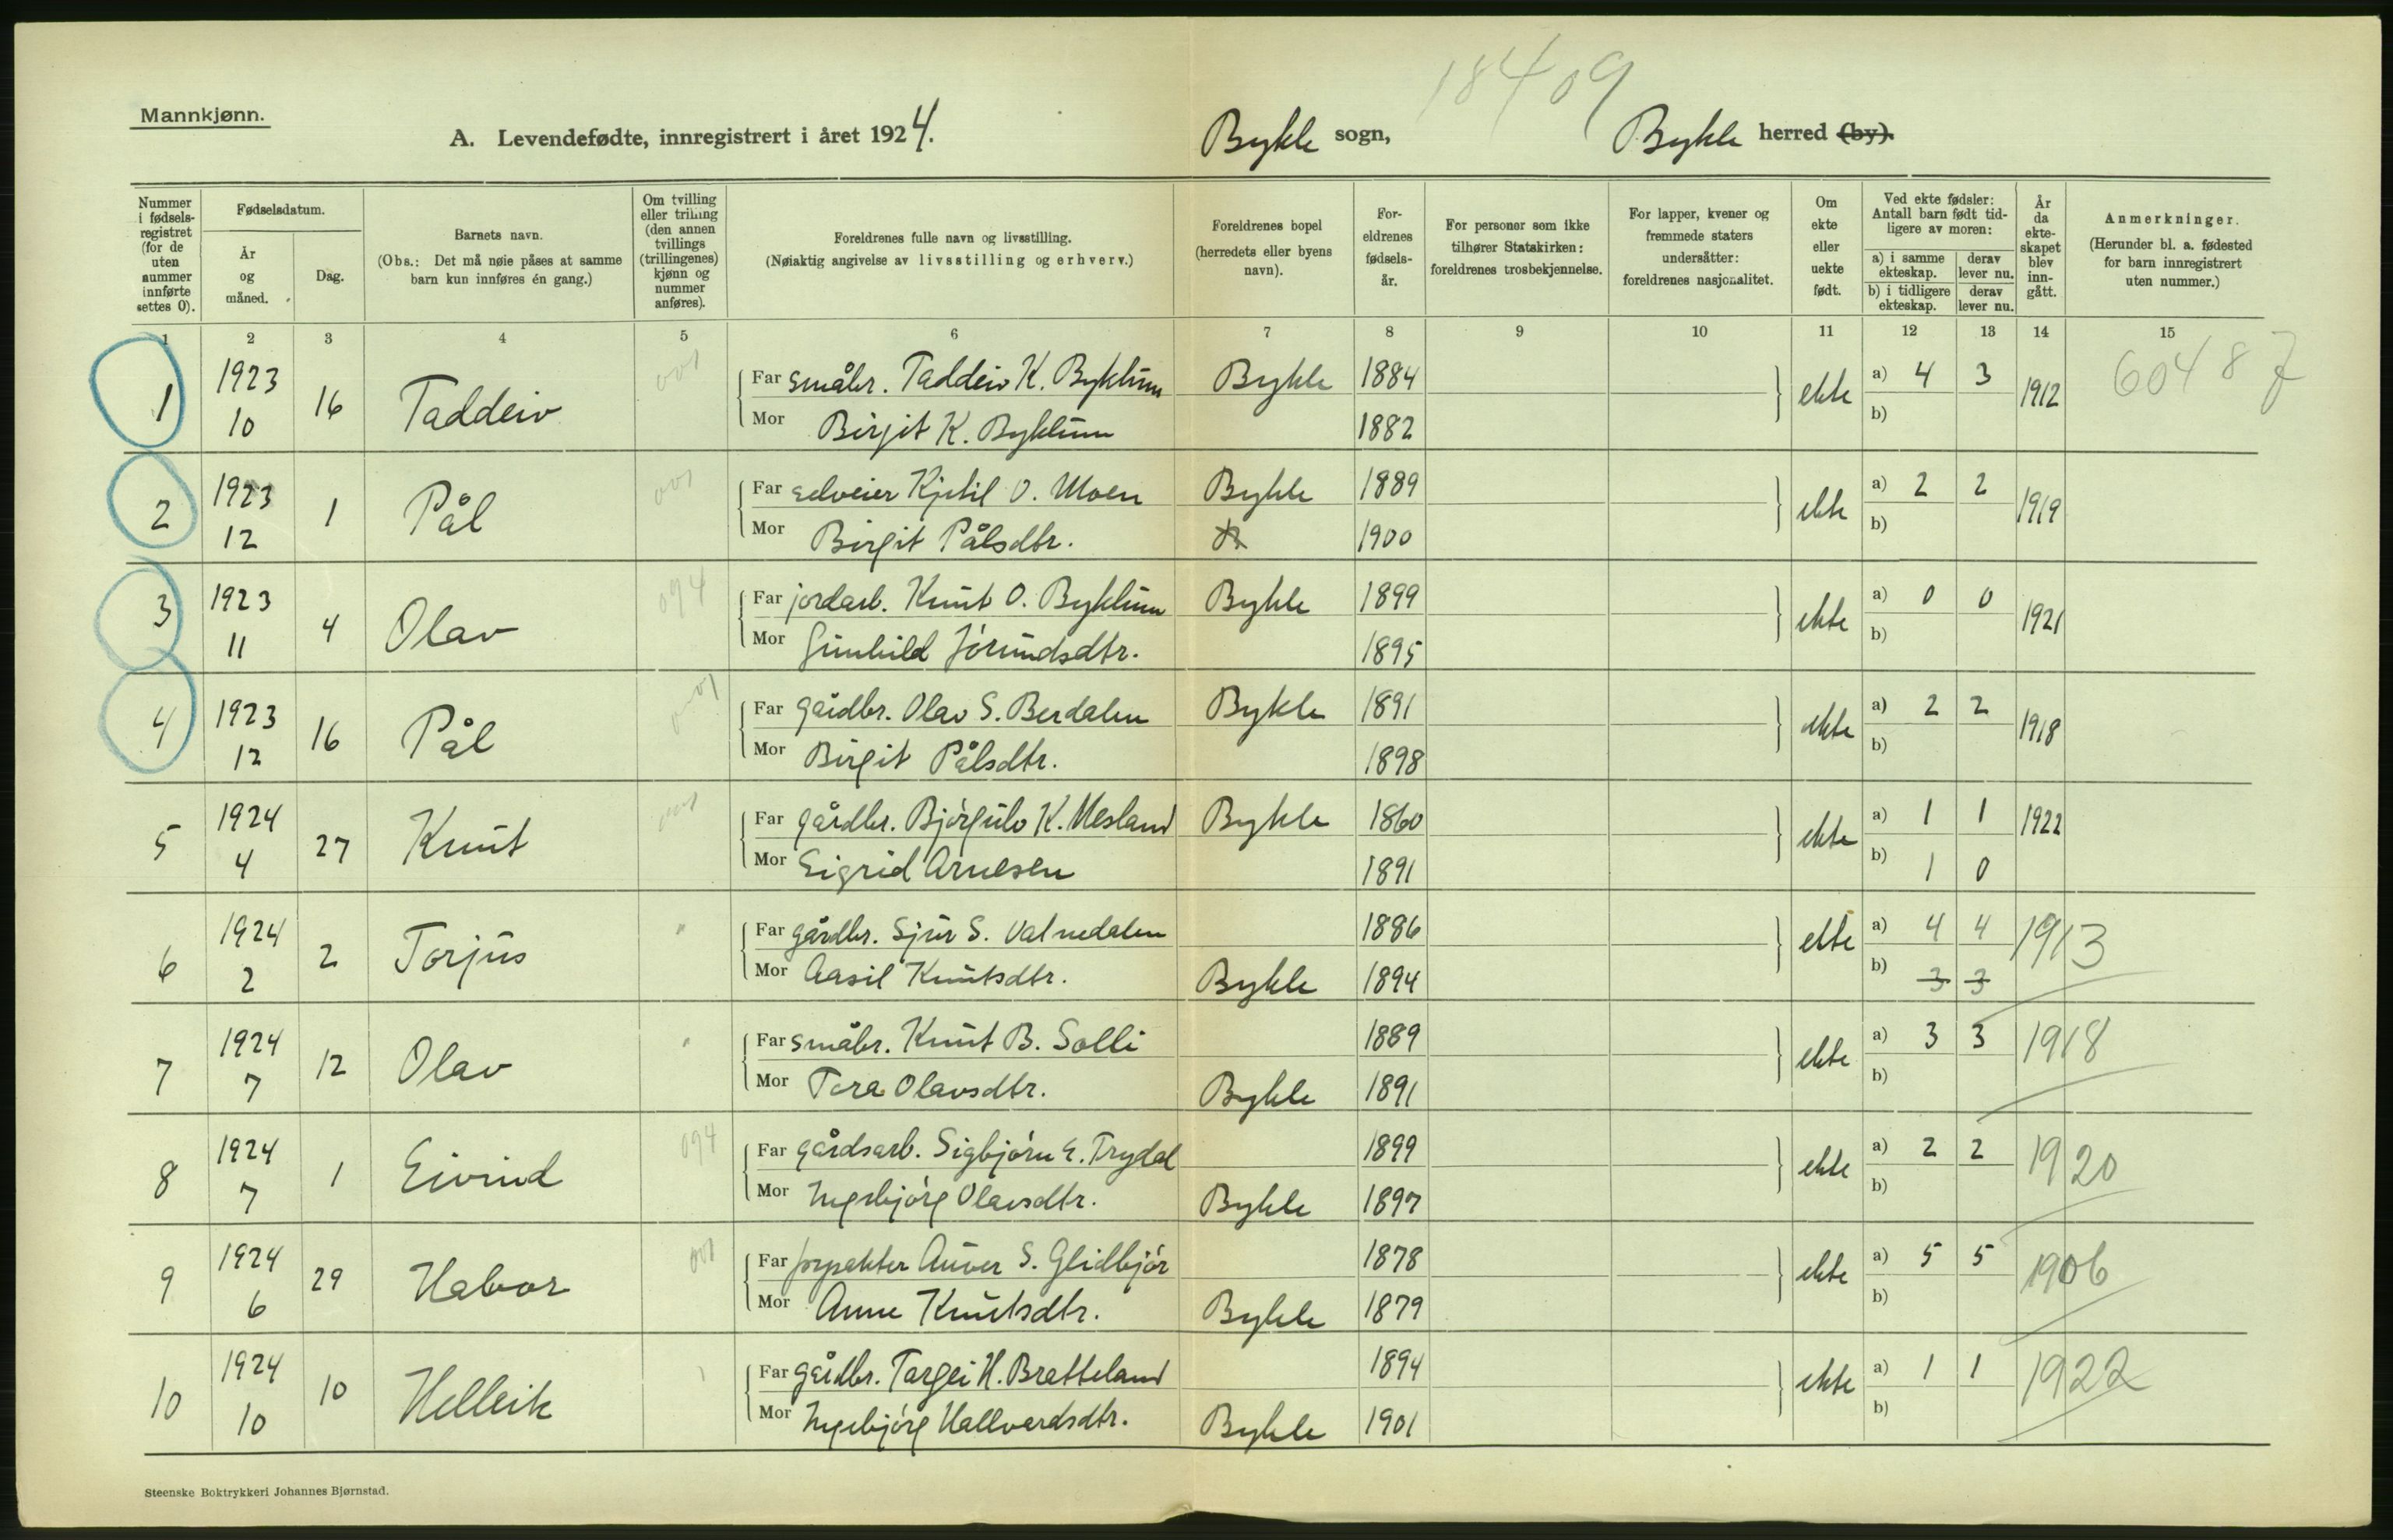 18409
Mannkjønn.
A. Levendefødte, innregistrert i året 1924.
Bykle sogn, Bykle herred (by).
Nummer i fødsels-registret (for de uten nummer innførte settes 0).
Fødselsdatum.
År og måned.
Dag.
Barnets navn.
(Obs.: Det må nøie påses at samme barn kun innføres én gang.)
Om tvilling eller trilling (den annen tvillings (trillingenes) kjønn og nummer anføres).
Foreldrenes fulle navn og livsstilling.
(Nøiaktig angivelse av livsstilling og erhverv.)
Foreldrenes bopel (herredets eller byens navn).
For-eldrenes fødsels-år.
For personer som ikke tilhører Statskirken: foreldrenes trosbekjennelse.
For lapper, kvener og fremmede staters undersåtter: foreldrenes nasjonalitet.
Om ekte eller uekte født.
Ved ekte fødsler: Antall barn født tid-ligere av moren:
a) i samme ekteskap. derav lever nu.
b) i tidligere ekteskap. derav lever nu.
År da ekte-skapet blev inn-gått.
Anmerkninger.
(Herunder bl. a. fødested for barn innregistrert uten nummer.)
1 2 3 4 5 6 7 8 9 10 11 12 13 14 15
1 1923 10 16 Taddeiv 001 Far småbr. Taddeiv K. Byklum Bykle 1884 ekte a) 4 3 1912 60487
Mor Birgit K. Byklum 1882 b)
2 1923 12 1 Pål 001 Far selveier Kjetil O. Moen Bykle 1889 ekte a) 2 2 1919
Mor Birgit Pålsdtr. 1900 b)
3 1923 11 4 Olav 094 Far jordarb. Knut O. Byklum Bykle 1899 ekte a) 0 0 1921
Mor Gunhild Jórundsdtr. 1895 b)
4 1923 12 16 Pål 001 Far gårdbr. Olav S. Berdalen Bykle 1891 ekte a) 2 2 1918
Mor Birgit Pålsdtr. 1898 b)
5 1924 4 27 Knut 001 Far gårdbr. Bjórgulv K. Mesland Bykle 1860 ekte a) 1 1 1922
Mor Sigrid Arnesen 1891 b) 1 0
6 1924 2 2 Torjus " Far gårdbr. Sjur S. Vatnedalen 1886 ekte a) 4 4 1913
Mor Aasil Knutsdtr. Bykle 1894 b) 3 3
7 1924 7 12 Olav " Far småbr. Knut B. Solli 1889 ekte a) 3 3 1918
Mor Tora Olavsdtr. Bykle 1891 b)
8 1924 7 1 Eivind 094 Far gårdsarb. Sigbjórn E. Trydal 1899 ekte a) 2 2 1920
Mor Ingebjórg Olavsdtr. Bykle 1897 b)
9 1924 6 29 Habor 001 Far forpakter Auver S. Glidbjór 1878 ekte a) 5 5 1906
Mor Anne Knutsdtr. Bykle 1879 b)
10 1924 10 10 Helleik Far gårdbr. Targei H. Bratteland 1894 ekte a) 1 1 1922
Mor Ingebjórg Hallvardsdtr. Bykle 1901 b)
Steenske Boktrykkeri Johannes Bjørnstad.